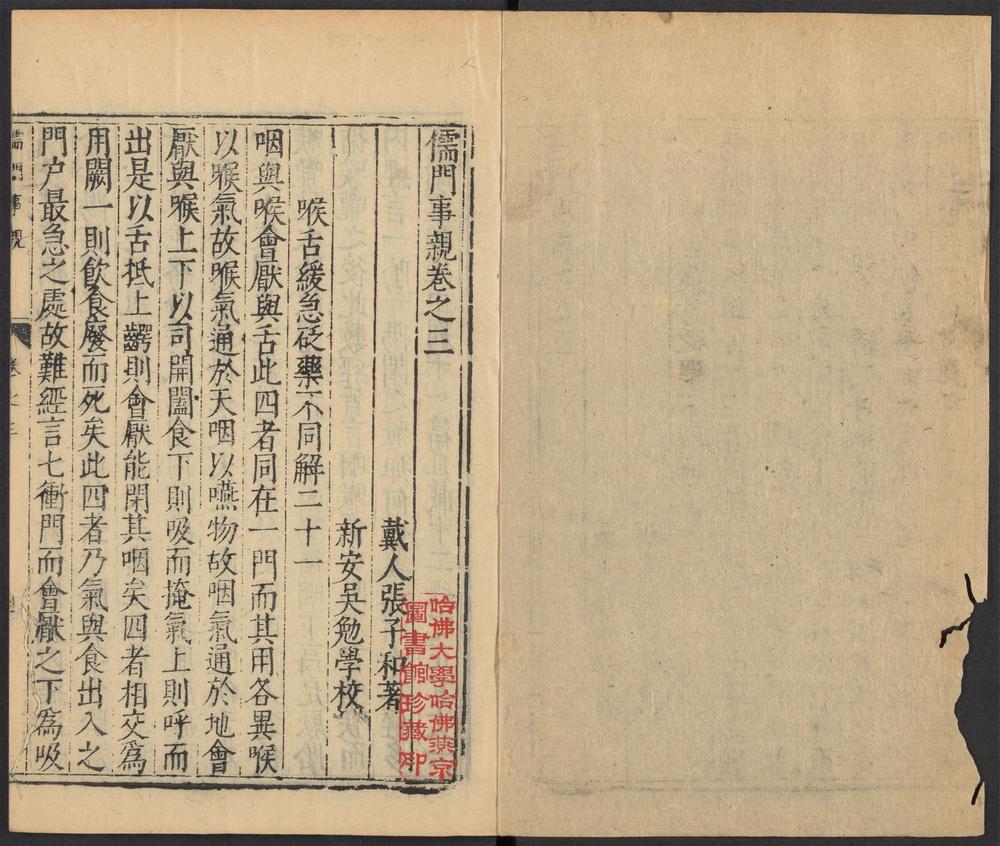 儒門事親卷之三
戴人張子和著
新安吳勉學校
喉舌緩急砭藥不同解二十一
咽與喉會厭與舌此四者同在一門而其用各異喉
以喉氣故喉氣通於天咽以嚥物故咽氣通於地會
厭與喉上下以司開闔食下則吸而掩氣上則呼而
出是以舌抵上齶則會厭能閉其咽矣四者相交為
用闕一則飲食廢而死矣此四者乃氣與食出入之
門户最急之處故難經言七衝門而會厭之下為吸
儒門事親
卷之三
哈佛大學哈佛燕京
圖書館珍藏印